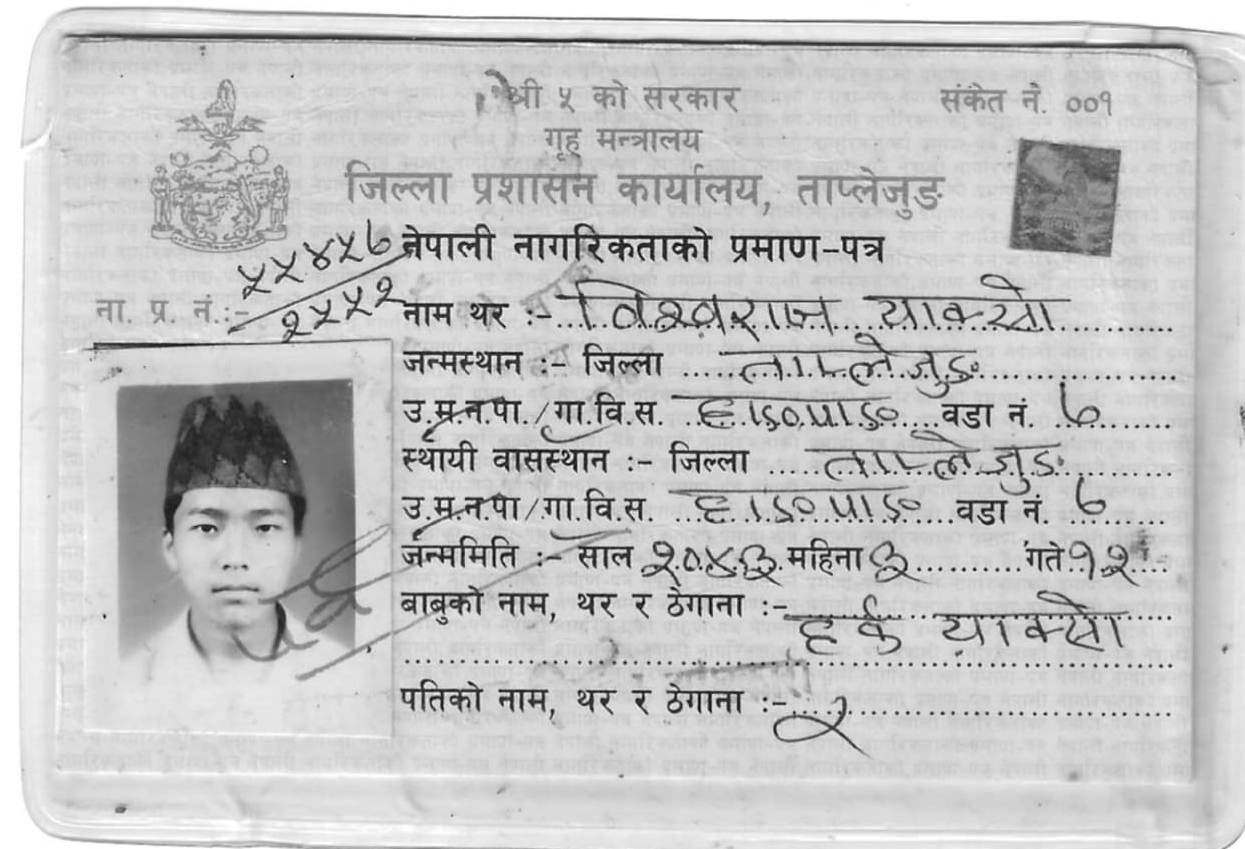 श्री ५ को सरकार
संकेत नं. ००१
गृह मन्त्रालय
जिल्ला प्रशासन कार्यालय, ताप्लेजुङ
नेपाली नागरिकताको प्रमाण-पत्र
ना. प्र. नं. :-
नाम थर :- विश्वराज याक्सो
जन्मस्थान :- जिल्ला ताप्लेजुङ
उ.म.न.पा./गा.वि.स. वडा नं. ७
स्थायी वासस्थान :- जिल्ला ताप्लेजुङ
उ.म.न.पा/गा.वि.स. वडा नं. ७
जन्ममिति :- साल २०४३ महिना ३ गते १२
बाबुको नाम, थर र ठेगाना :-
हर्क याक्सो
पतिको नाम, थर र ठेगाना :-